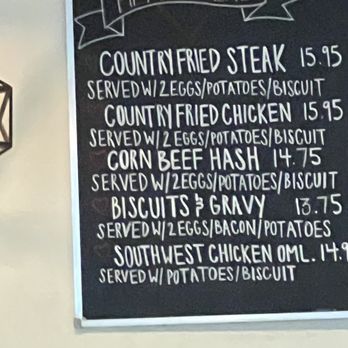 COUNTRY FRIED STEAK 15.95
SERVED W/2EGGS/POTATOES/BISCUIT
COUNTRY FRIED CHICKEN 15.95
SERVED W/2EGGS/POTATOES/BISCUIT
CORN BEEF HASH 14.75
SERVED W/2EGGS/POTATOES/BISCUIT
BISCUITS & GRAVY 13.75
SERVED W/2EGGS/BACON/POTATOES
SOUTHWEST CHICKEN OML. 14.9
SERVED W/POTATOES/BISCUIT